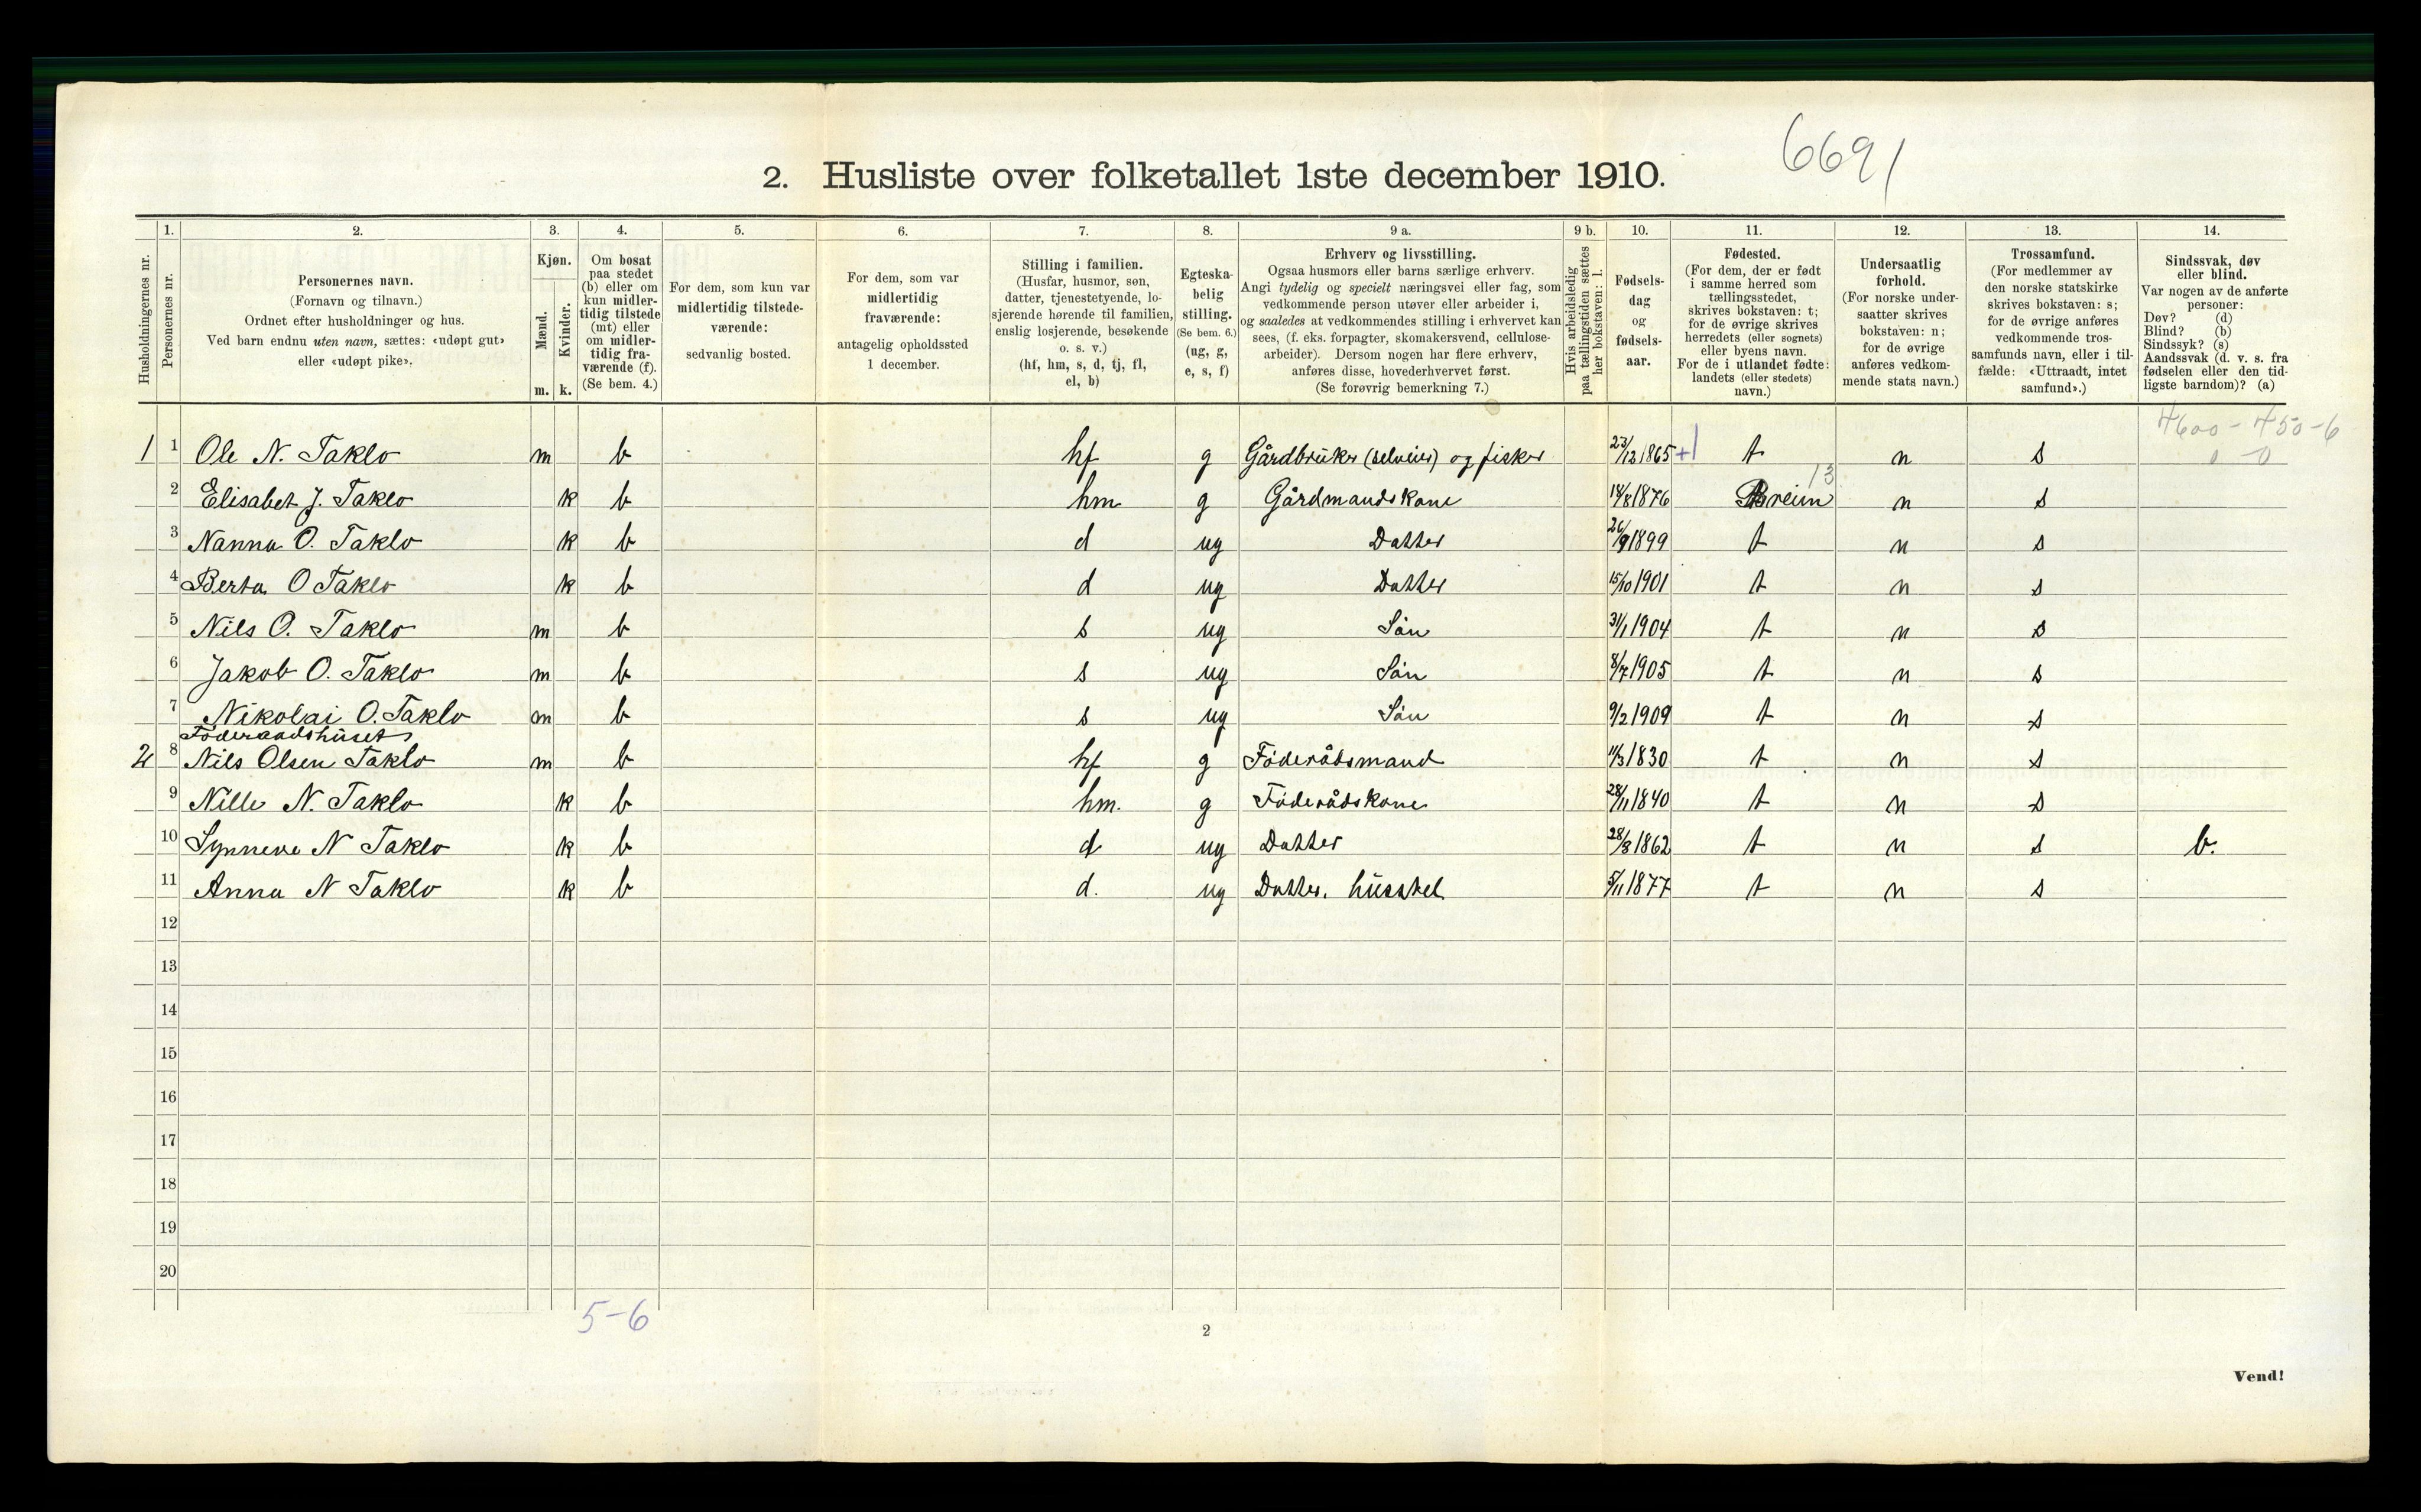 6691
2. Husliste over folketallet 1ste december 1910.
Husholdningernes nr.
1.
Personernes nr.
2.
Personernes navn.
(Fornavn og tilnavn.)
Ordnet efter husholdninger og hus.
Ved barn endnu uten navn, sættes: «udøpt gut»
eller «udøpt pike».
3.
Kjøn.
Mænd.
Kvinder.
m. k.
4.
Om bosat
paa stedet
(b) eller om
kun midler-
tidig tilstede
(mt) eller
om midler-
tidig fra-
værende (f).
(Se bem. 4.)
5.
For dem, som kun var
midlertidig tilstede-
værende:
sedvanlig bosted.
6.
For dem, som var
midlertidig
fraværende:
antagelig opholdssted
1 december.
7.
Stilling i familien.
(Husfar, husmor, søn,
datter, tjenestetyende, lo-
sjerende hørende til familien,
enslig losjerende, besøkende
o. s. v.)
(hf, hm, s, d, tj, fl,
el, b)
8.
Egteska-
belig
stilling.
(Se bem. 6.)
(ug, g,
e, s, f)
9 a.
Erhverv og livsstilling.
Ogsaa husmors eller barns særlige erhverv.
Angi tydelig og specielt næringsvei eller fag, som
vedkommende person utøver eller arbeider i,
og saaledes at vedkommendes stilling i erhvervet kan
sees, (f. eks. forpagter, skomakersvend, cellulose-
arbeider). Dersom nogen har flere erhverv,
anføres disse, hovederhvervet først.
(Se forøvrig bemerkning 7.)
9 b.
Hvis arbeidsledig
paa tællingstiden sættes
her bokstaven: l.
10.
Fødsels-
dag
og
fødsels-
aar.
11.
Fødested.
(For dem, der er født
i samme herred som
tællingsstedet,
skrives bokstaven: t;
for de øvrige skrives
herredets (eller sognets)
eller byens navn.
For de i utlandet fødte:
landets (eller stedets)
navn.)
12.
Undersaatlig
forhold.
(For norske under-
saatter skrives
bokstaven: n;
for de øvrige
anføres vedkom-
mende stats navn.)
13.
Trossamfund.
(For medlemmer av
den norske statskirke
skrives bokstaven: s;
for de øvrige anføres
vedkommende tros-
samfunds navn, eller i til-
fælde: «Uttraadt, intet
samfund».)
14.
Sindssvak, døv
eller blind.
Var nogen av de anførte
personer:
Døv? (d)
Blind? (b)
Sindssyk? (s)
Aandssvak (d. v. s. fra
fødselen eller den tid-
ligste barndom)? (a)
4600 - 450-6
0 0
1 1 Ole N. Taklo m b hf g Gårdbruker (selveier) og fisker 23/12 1865 +1 t n s
13
2 Elisabet J. Taklo k b hm g Gårdmandskone 18/8 1876 Breim n s
3 Nanna O. Taklo k b d ug Datter 26/9 1899 t n s
4 Berta O Taklo k b d ug Datter 15/10 1901 t n s
5 Nils O. Taklo m b s ug Sön 31/1 1904 t n s
6 Jakob O. Taklo m b s ug Sön 8/7 1905 t n s
7 Nikolai O. Taklo m b s ug Sön 9/2 1909 t n s
Föderaadshuset
2 8 Nils Olsen Taklo m b hf g Föderådsmand 11/3 1830 t n s
9 Nille N. Taklo k b hm. g Föderådskone 28/11 1840 t n s
10 Synneve N Taklo k b d ug Datter 28/3 1862 t n s b.
11 Anna N Taklo k b d. ug Datter. husstel 5/11 1877 t n s
12
13
14
15
16
17
18
19
20
5-6
2
Vend!